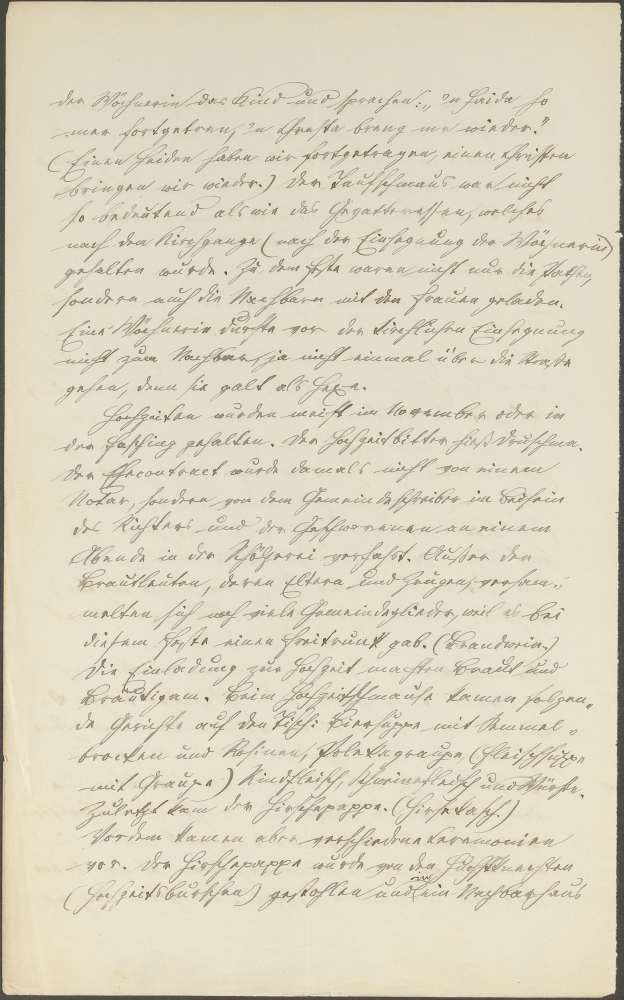 der Wöchnerin das Kind und sprachen: „'n Haida ho
mer fortgetren, 'n Chresta breng mr wieder."
(Einen Heiden haben wir fortgetragen, einen Christen
bringen wir wieder.) Der Taufschmaus war nicht
so bedeutend als wie das Gevatteressen, welches
nach dem Kirchgange (nach der Einsegnung der Wöchnerin)
gehalten wurde. Zu dem Feste waren nicht nur die Pathen,
sondern auch die Nachbarn mit den Frauen geladen.
Eine Wöchnerin durfte vor der kirchlichen Einsegnung
nicht zum Nachbar, ja nicht einmal über die Straße
gehen, denn sie galt als Hexe.
Hochzeiten wurden meist im November oder in
dem Fasching gehalten. Der Hochzeitbitter hieß Druschma.
Der Ehecontract wurde damals nicht von einem
Notar, sondern von dem Gemeindeschreiber im Beisein
des Richters und der Geschworenen an einem
Abende in der Scholzerei verfasst. Außer den
Brautleuten, deren Eltern und Zeugen, versam-
melten sich noch viele Gemeindeglieder, weil es bei
diesem Feste einen Freitrunk gab. (Brandwein.)
Die Einladung zur Hochzeit machten Braut und
Bräutigam. Beim Hochzeitsschmause kamen folgen-
de Gerichte auf den Tisch: Biersuppe mit Semmel-
brocken und Rosinen, graupe (Fleischsuppe
mit Graupe) Rindfleisch, Schweinefleisch und Würste.
Zuletzt kam der Hirschepappe. (Hirsekasch.)
Vordem kamen aber verschiedene Ceremonien
vor. Der Hirschepappe wurde von den Huchtknechten
(Hochzeitsburschen) gestohlen und in ein Nachbarhaus